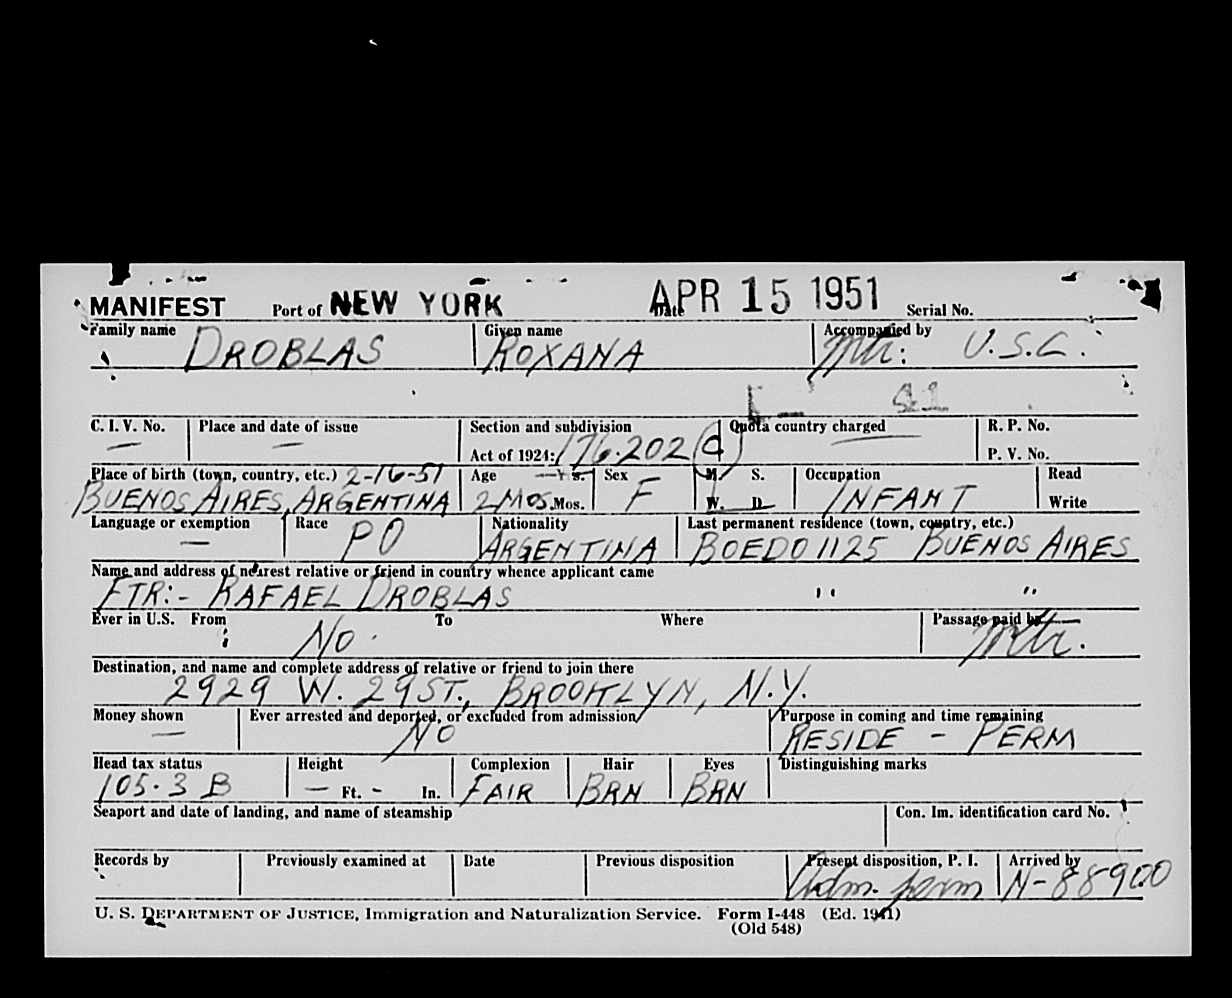 MANIFEST Port of NEW YORK Date APR 15 1951 Serial No.
Family name Given name Accompanied by
DROBLAS ROXANA Mtr: U.S.C.
C. I. V. No. Place and date of issue Section and subdivision Quota country charged R. P. No.
— — Act of 1924: 176.202(a) P. V. No.
Place of birth (town, country, etc.) 2-16-51 Age Sex M. S. Occupation Read
BUENOS AIRES, ARGENTINA 2 MOS. Mos. F W. D. INFANT Write
Language or exemption Race Nationality Last permanent residence (town, country, etc.)
— PO ARGENTINA BOEDO 1125 BUENOS AIRES
Name and address of nearest relative or friend in country whence applicant came
FTR:- RAFAEL DROBLAS " "
Ever in U.S. From To Where Passage paid by
No. Mtr.
Destination, and name and complete address of relative or friend to join there
2929 W. 29 ST., BROOKLYN, N.Y.
Money shown Ever arrested and deported, or excluded from admission Purpose in coming and time remaining
— NO RESIDE - PERM
Head tax status Height Complexion Hair Eyes Distinguishing marks
105.3 B — Ft. - In. FAIR BRN BRN
Seaport and date of landing, and name of steamship Con. Im. identification card No.
Records by Previously examined at Date Previous disposition Present disposition, P. I. Arrived by
Adm. perm N-88900
U. S. DEPARTMENT OF JUSTICE, Immigration and Naturalization Service. Form I-448 (Ed. 1941)
(Old 548)